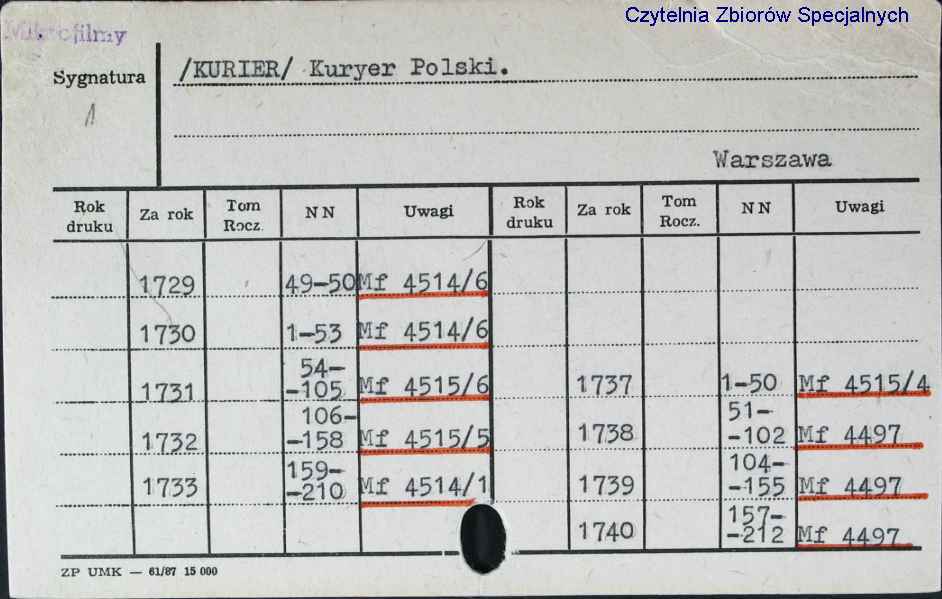 Czytelnia Zbiorów Specjalnych
Mikrofilmy
Sygnatura
1
/KURIER/ Kuryer Polski.
Warszawa
Rok druku Za rok Tom Rocz. NN Uwagi Rok druku Za rok Tom Rocz. NN Uwagi
1729 49-50 Mf 4514/6
1730 1-53 Mf 4514/6
1731 54--105 Mf 4515/6 1737 1-50 Mf 4515/4
1732 106--158 Mf 4515/5 1738 51--102 Mf 4497
1733 159--210 Mf 4514/1 1739 104--155 Mf 4497
1740 157--212 Mf 4497
ZP UMK — 61/87 15 000